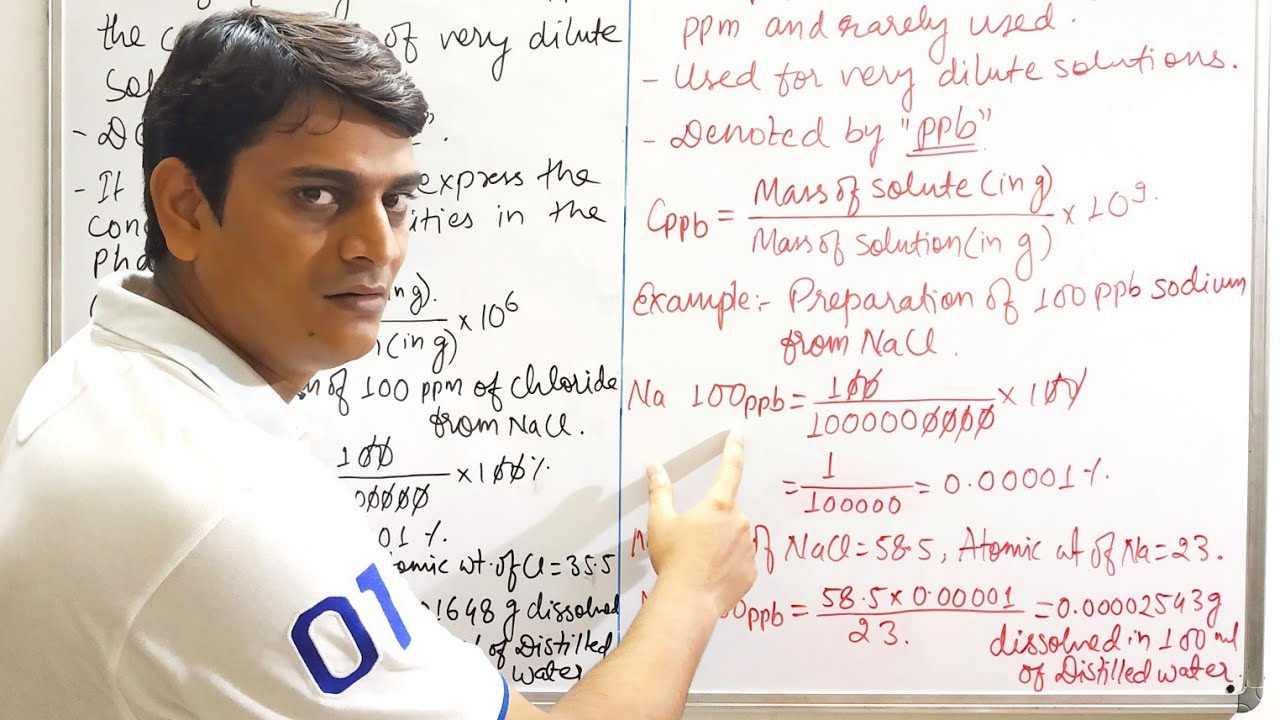 the of very dilute
- It express the
in the
× 10⁶
of 100 ppm of chloride
from NaCl.
100 × 100%
01 %
wt. of Cl = 35.5
1648 g dissolved
of Distilled
water
01
ppm and rarely used.
- Used for very dilute solutions.
- Denoted by "ppb"
Cppb = Mass of solute (in g) / Mass of solution (in g) × 10⁹.
Example:- Preparation of 100 ppb sodium
from NaCl.
Na 100 ppb = 100 / 1000000000 × 100
= 1 / 100000 = 0.00001 %.
of NaCl = 58.5, Atomic wt of Na = 23.
ppb = 58.5 × 0.00001 / 23. = 0.00002543 g
dissolved in 100 ml
of Distilled water.